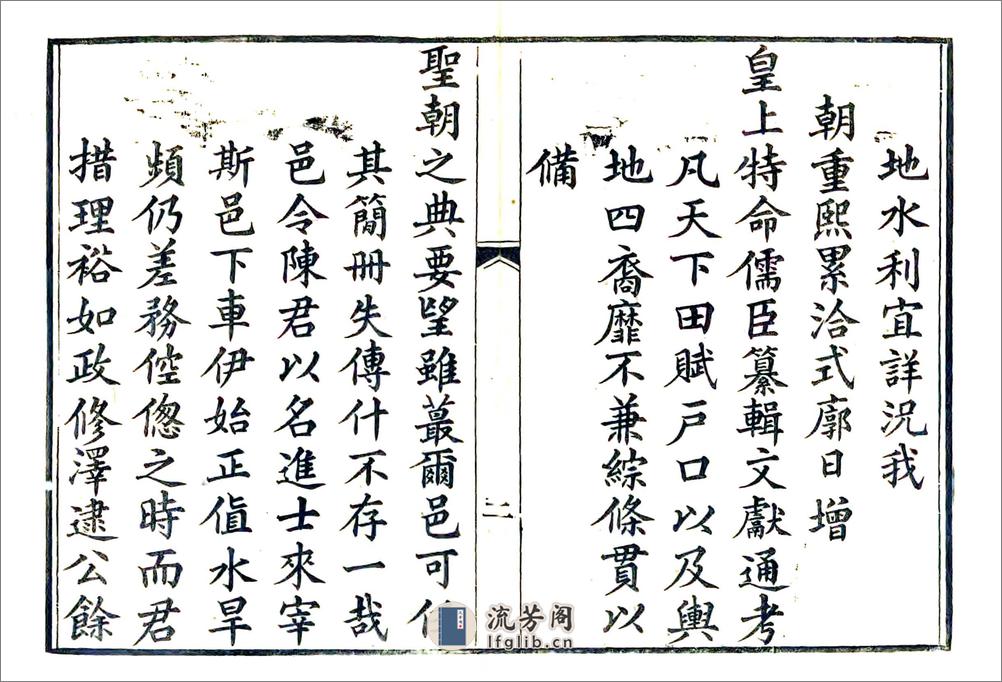 地水利宜詳況我
朝重熙累洽式廓日增
皇上特命儒臣纂輯文獻通考
凡天下田賦戶口以及輿
地四裔靡不兼綜條貫以
備
二
聖朝之典要望雖蕞爾邑可
其簡冊失傳什不存一哉
邑令陳君以名進士來宰
斯邑下車伊始正值水旱
頻仍差務倥傯之時而君
措理裕如政修澤逮公餘
流芳阁
lfglib.cn